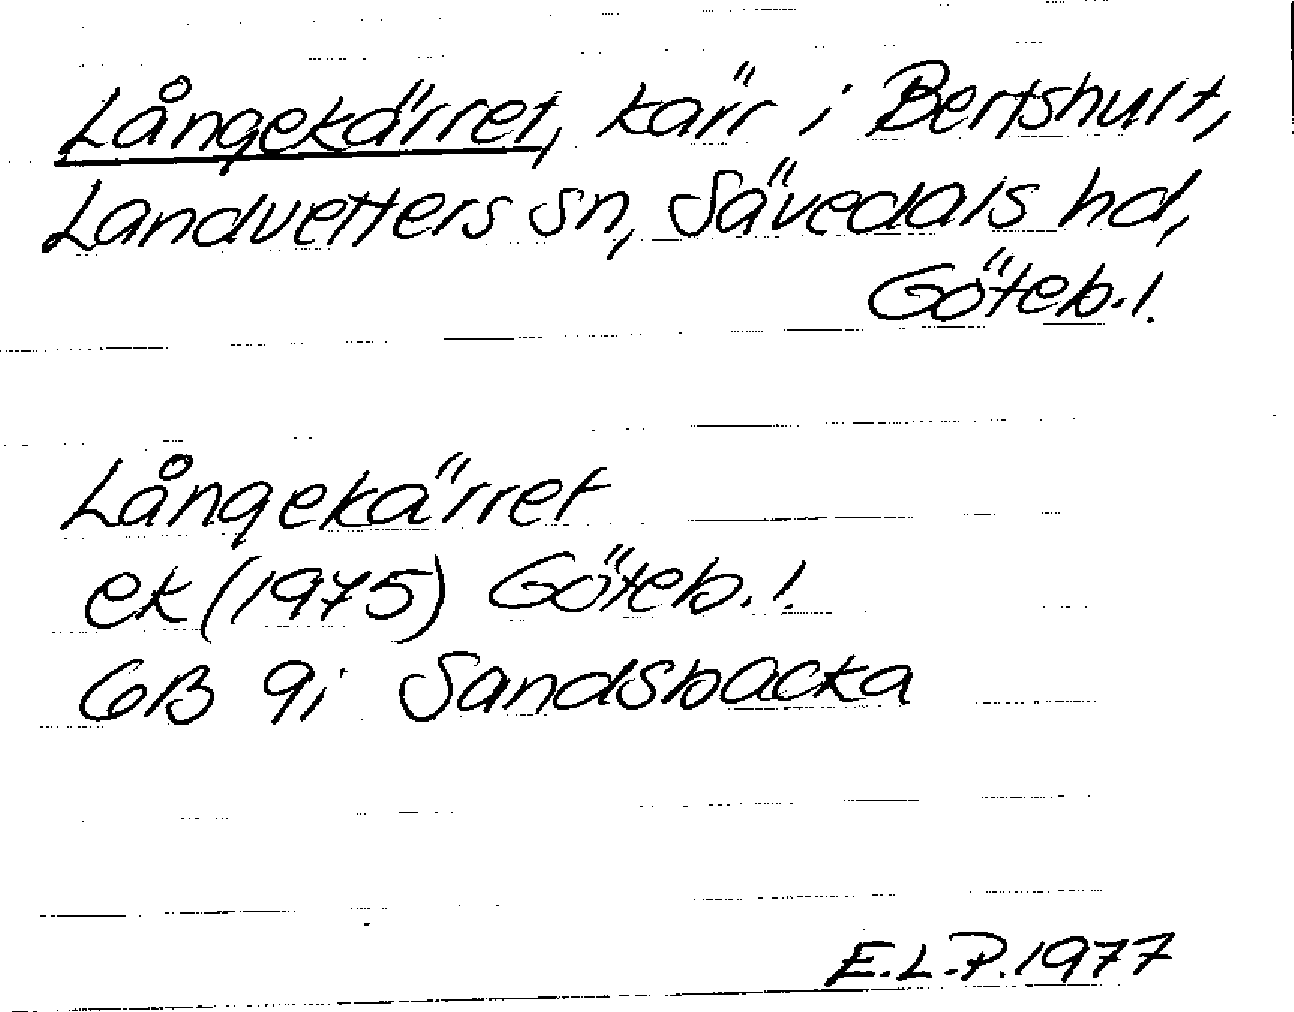 Långekärret, kärr i Bertshult,
Landvetters sn, Sävedals hd,
Göteb.l.
Långekärret
ek (1975) Göteb.l.
6B 9i Sandsbacka
E.L.P. 1977